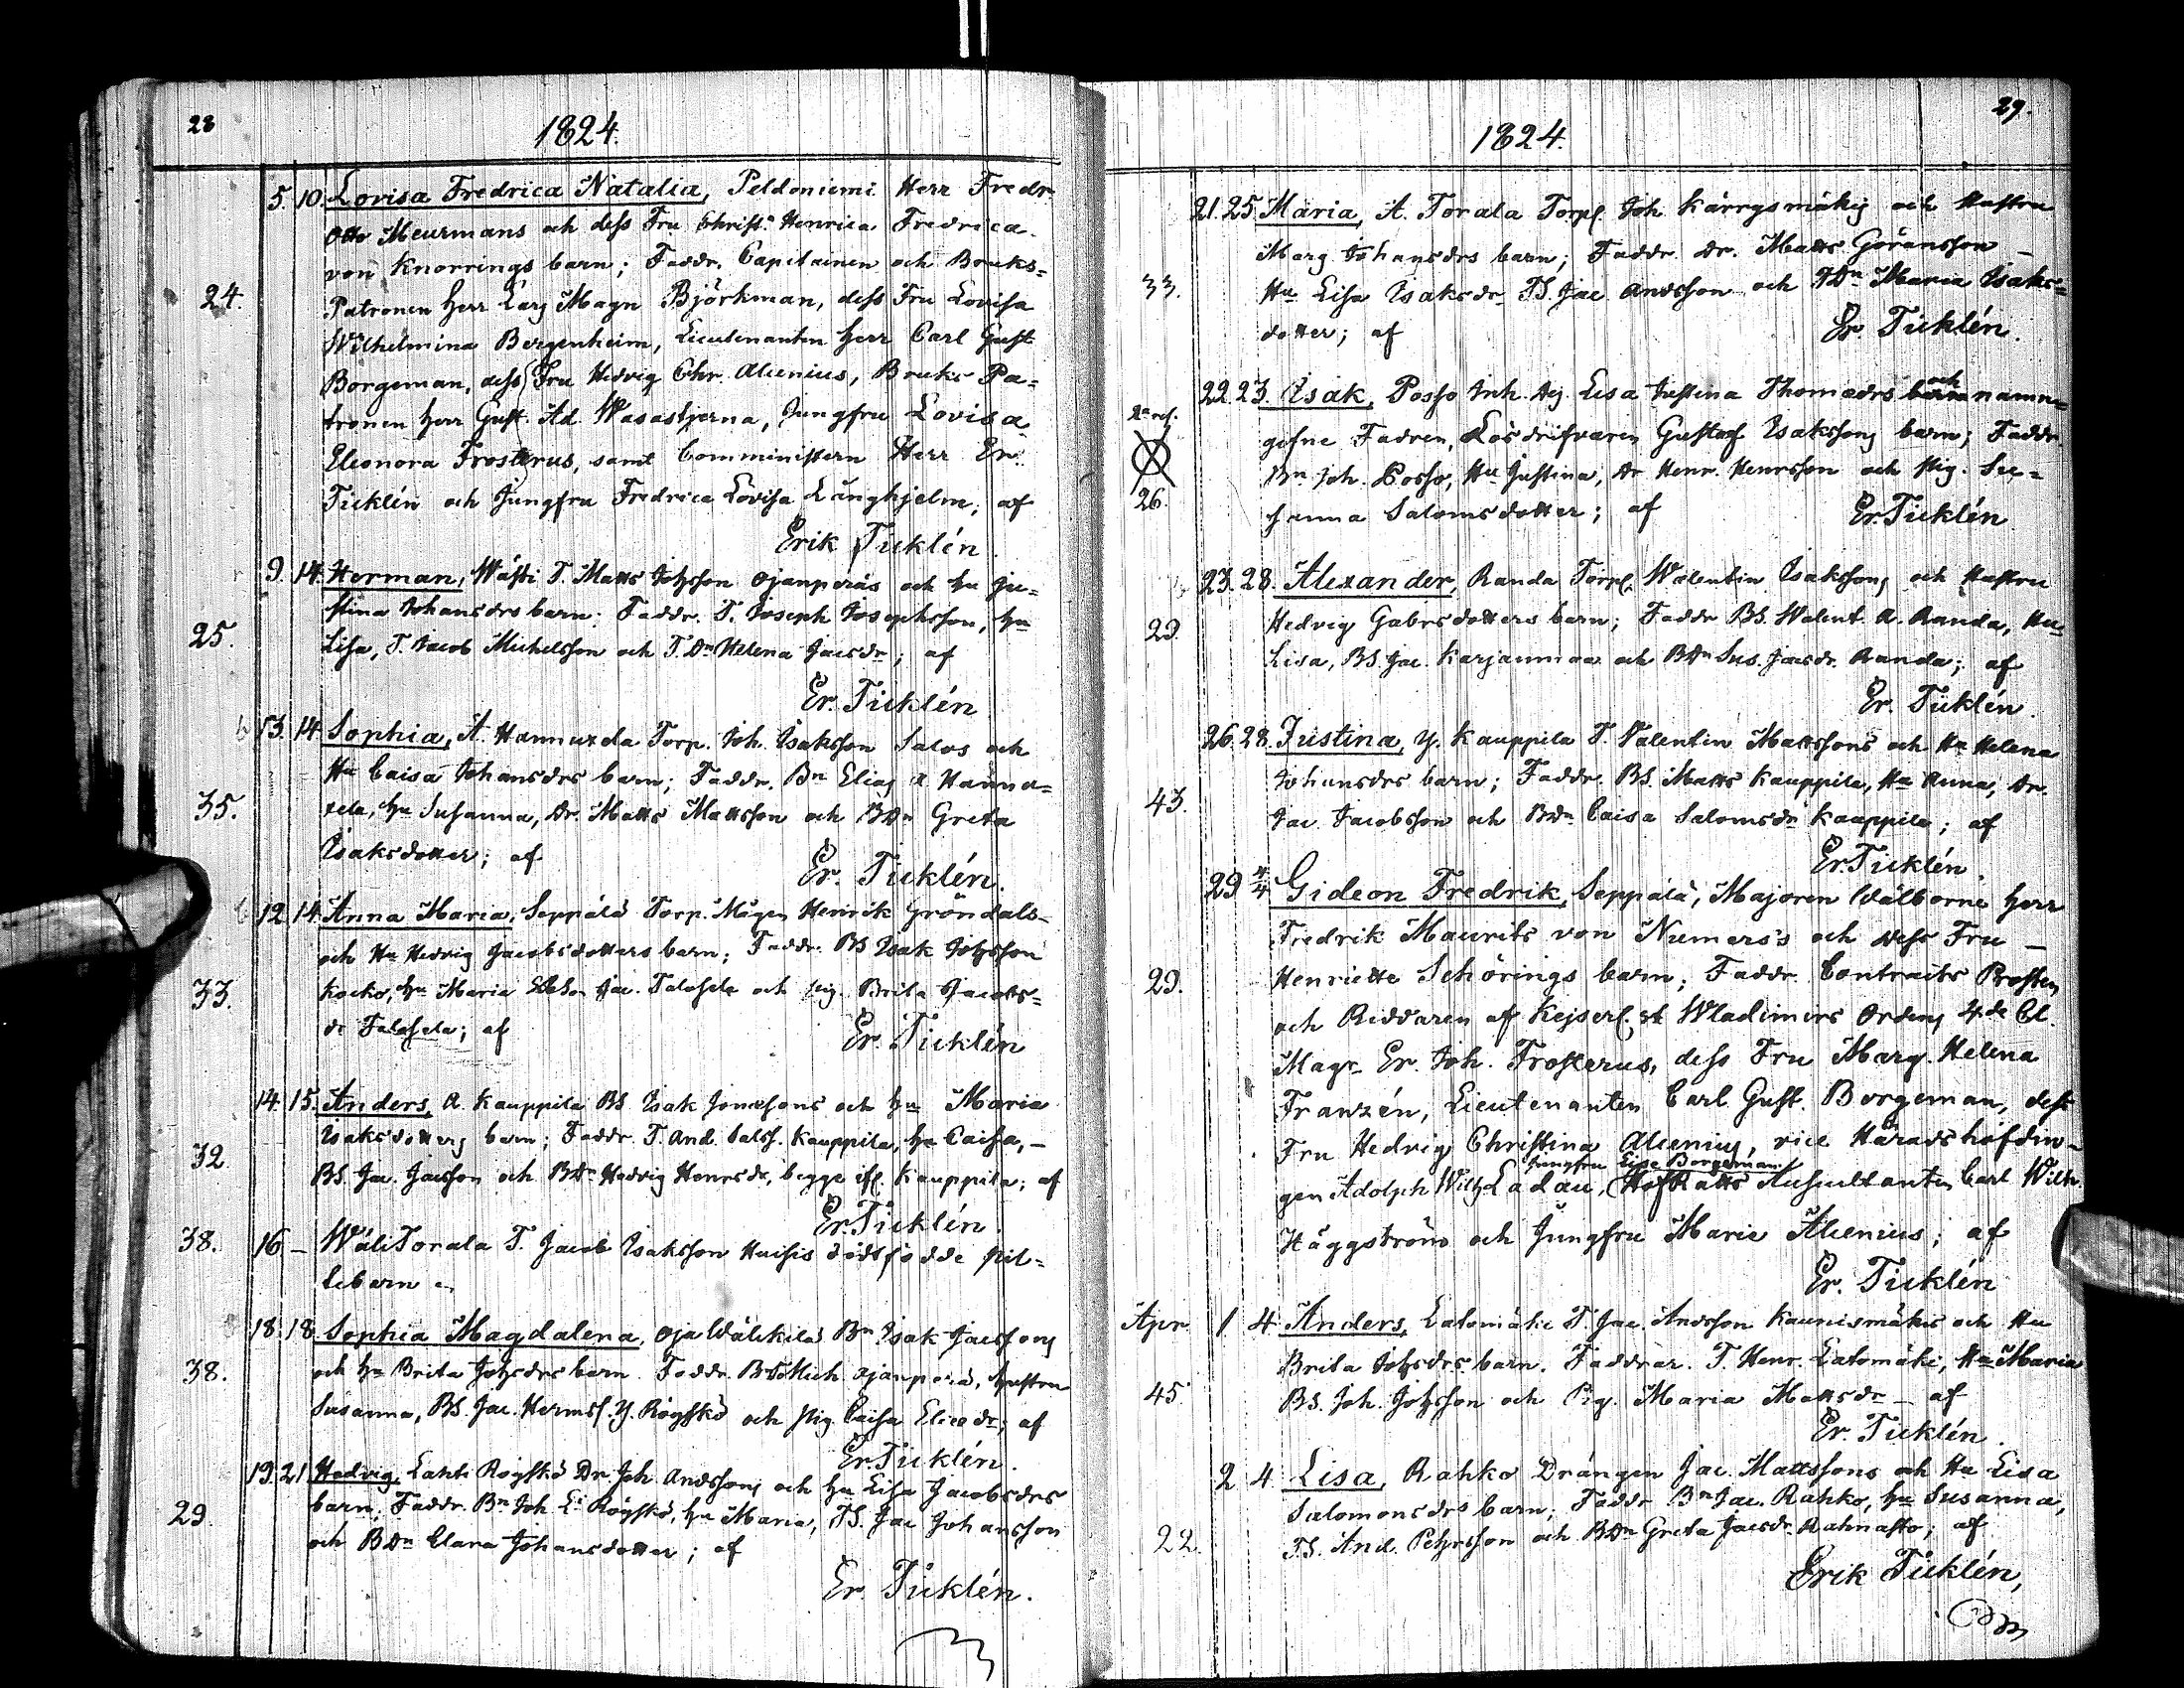 28
1824.
5. 10. Lovisa Fredrica Natalia, Peldoniemi Herr Fredr.
Otto Meurmans och dess Fru Christ. Henrica Fredrica
von Knorrings barn; Faddr. Capitainen och Bruks=
24. Patronen Herr Lars Magn Björkman, dess Fru Lovisa
Wilhelmina Bergenheim, Lieutenanten Herr Carl Gust
Borgeman, dess Fru Hedvig Chr. Alcenius, Bruks Pa=
tronen Herr Gust. Ad. Wasastjerna, Jungfru Lovisa
Eleonora Frosterus, samt Comministern Herr Er.
Ticklén och Jungfru Fredrica Lovisa Långhjelm; af
Erik Ticklén.
9. 14. Herman, Wästi T. Matts Johsson Ojanperäs och Hu Ju=
stina Johansdrs barn; Faddr. T. Joseph Josephsson, Hu
25. Lisa, T. Jacob Michelsson och T.Dn Helena Jacsdr; af
Er. Ticklén
13. 14. Sophia, A. Hannuxela Torp. Joh. Isaksson Salos och
Hu Caisa Johansdrs barn; Faddr. Bn Elias A Hannu=
35. xela, Hu Susanna, Dr. Matts Mattsson och BDn Greta
Isaksdotter; af
Er. Ticklén.
12. 14. Anna Maria, Seppälä Torp. Mågen Henrik Gröndals
och Hu Hedvig Jacobsdotters barn; Faddr. BS Isak Johsson
33. Kocko, Hu Maria Jac. Talosela och Pig. Brita Jacobs=
dr Talosela; af
Er. Ticklén
14. 15. Anders, A. Kauppila BS. Isak Jonaesons och Hu Maria
Isaksdotters barn; Faddr. T. And. Kauppila, Hu Caisa, —
32. BS. Jac. Jacsson och BDn Hedvig Henrsdr, begge ifr. Kauppila; af
Er. Ticklén.
38. 16 — WäliTorala T. Jacob Isaksson Huisis dödfödde pil=
tebarn
18. 18. Sophia Magdalena, Oja Wälikilä Bn Isak Jacssons
och Hu Brita Johsdrs barn. Faddr. BS Mich. Ojanperä, Hustru
38. Susanna, BS. Jac. Hermsf. Y. Röyskö och Pig. Caisa Eliedr; af
Er. Ticklén.
19. 21. Hedvig, Lahti Röyskö Dr. Joh Andssons och Hu Lisa Jacobsdrs
barn; Faddr. Bn Joh. L. Röyskö, Hu Maria, TS. Jac Johansson
29. och BDn Clara Johansdotter; af
Er. Ticklén.
29.
1824.
21. 25. Maria, A. Torala Torp. Joh. Kärrysmäkis och Hustru
Marg. Johansdrs barn; Faddr. Dr. Matts Göransson —
33. Hu Lisa Isaksdr TS. Jac Andsson och TDn Maria Isaks=
dotter; af
Er. Ticklén.
22. 23. Isak, Posso Inh. Lisa Justina Thomaedrs och namn=
gifne Fadren, Lösdrifvaren Gustaf Isakssons barn; Faddr.
Bn Joh. Posso, Hu Justina, Dr Henr. Henrsson och Pig. Su=
26. sanna Salomsdotter; af
Er. Ticklén
23. 28. Alexander, Randa Torp. Walentin Isakssons och Hustru
29. Hedvig Gabrsdotters barn; Faddr BS. Walent. A. Randa, Hu
Lisa, BS. Jac. Karjanmaa och BDn Sus. Jacsdr. Randa; af
Er. Ticklén.
26. 28. Justina, Y. Kauppila T. Valentin Mattssons och Hu Helena
Johansdrs barn; Faddr. BS. Matts Kauppila, Hu Anna, Dr.
43. Jac. Jacobsson och BDn Caisa Salomsdr Kauppila; af
Er. Ticklén.
29 4/4 Gideon Fredrik, Seppälä, Majoren Välborne Herr
Fredrik Maurits von Numers's och dess Fru —
29. Henriette Schörings barn; Faddr. Contracts Prosten
och Riddaren af Kejserl. St Wladimirs Ordens 4de Cl.
Magr. Er. Joh. Frosterus, dess Fru Marg. Helena
Franzén, Lieutenanten Carl Gust. Borgeman, dess
Fru Hedvig Christina Alcenius, vice Häradshöfdin=
Jungfru Lisa Borgeman
gen Adolph Wilh Ladau, HofRätts Auscultanten Carl Wilh.
Häggström och Jungfru Marie Alcenius; af
Er. Ticklén
Apr. 1 4. Anders, Latomäki T. Jac. Andsson Kaunismäkis och Hu
Brita Johsdrs barn. Faddrar. T. Henr. Latomäki, Hu Maria
45. BS. Joh. Johsson och Pig. Maria Mattsdr — af
Er. Ticklén.
2 4. Lisa, Rahko Drängen Jac. Mattssons och Hu Lisa
Salomonsdrs barn; Faddr Bn Jac. Rahko, Hu Susanna,
22. TS. And. Petrsson och BDn Greta Jacsdr. Rahnasto; af
Erik Ticklén,